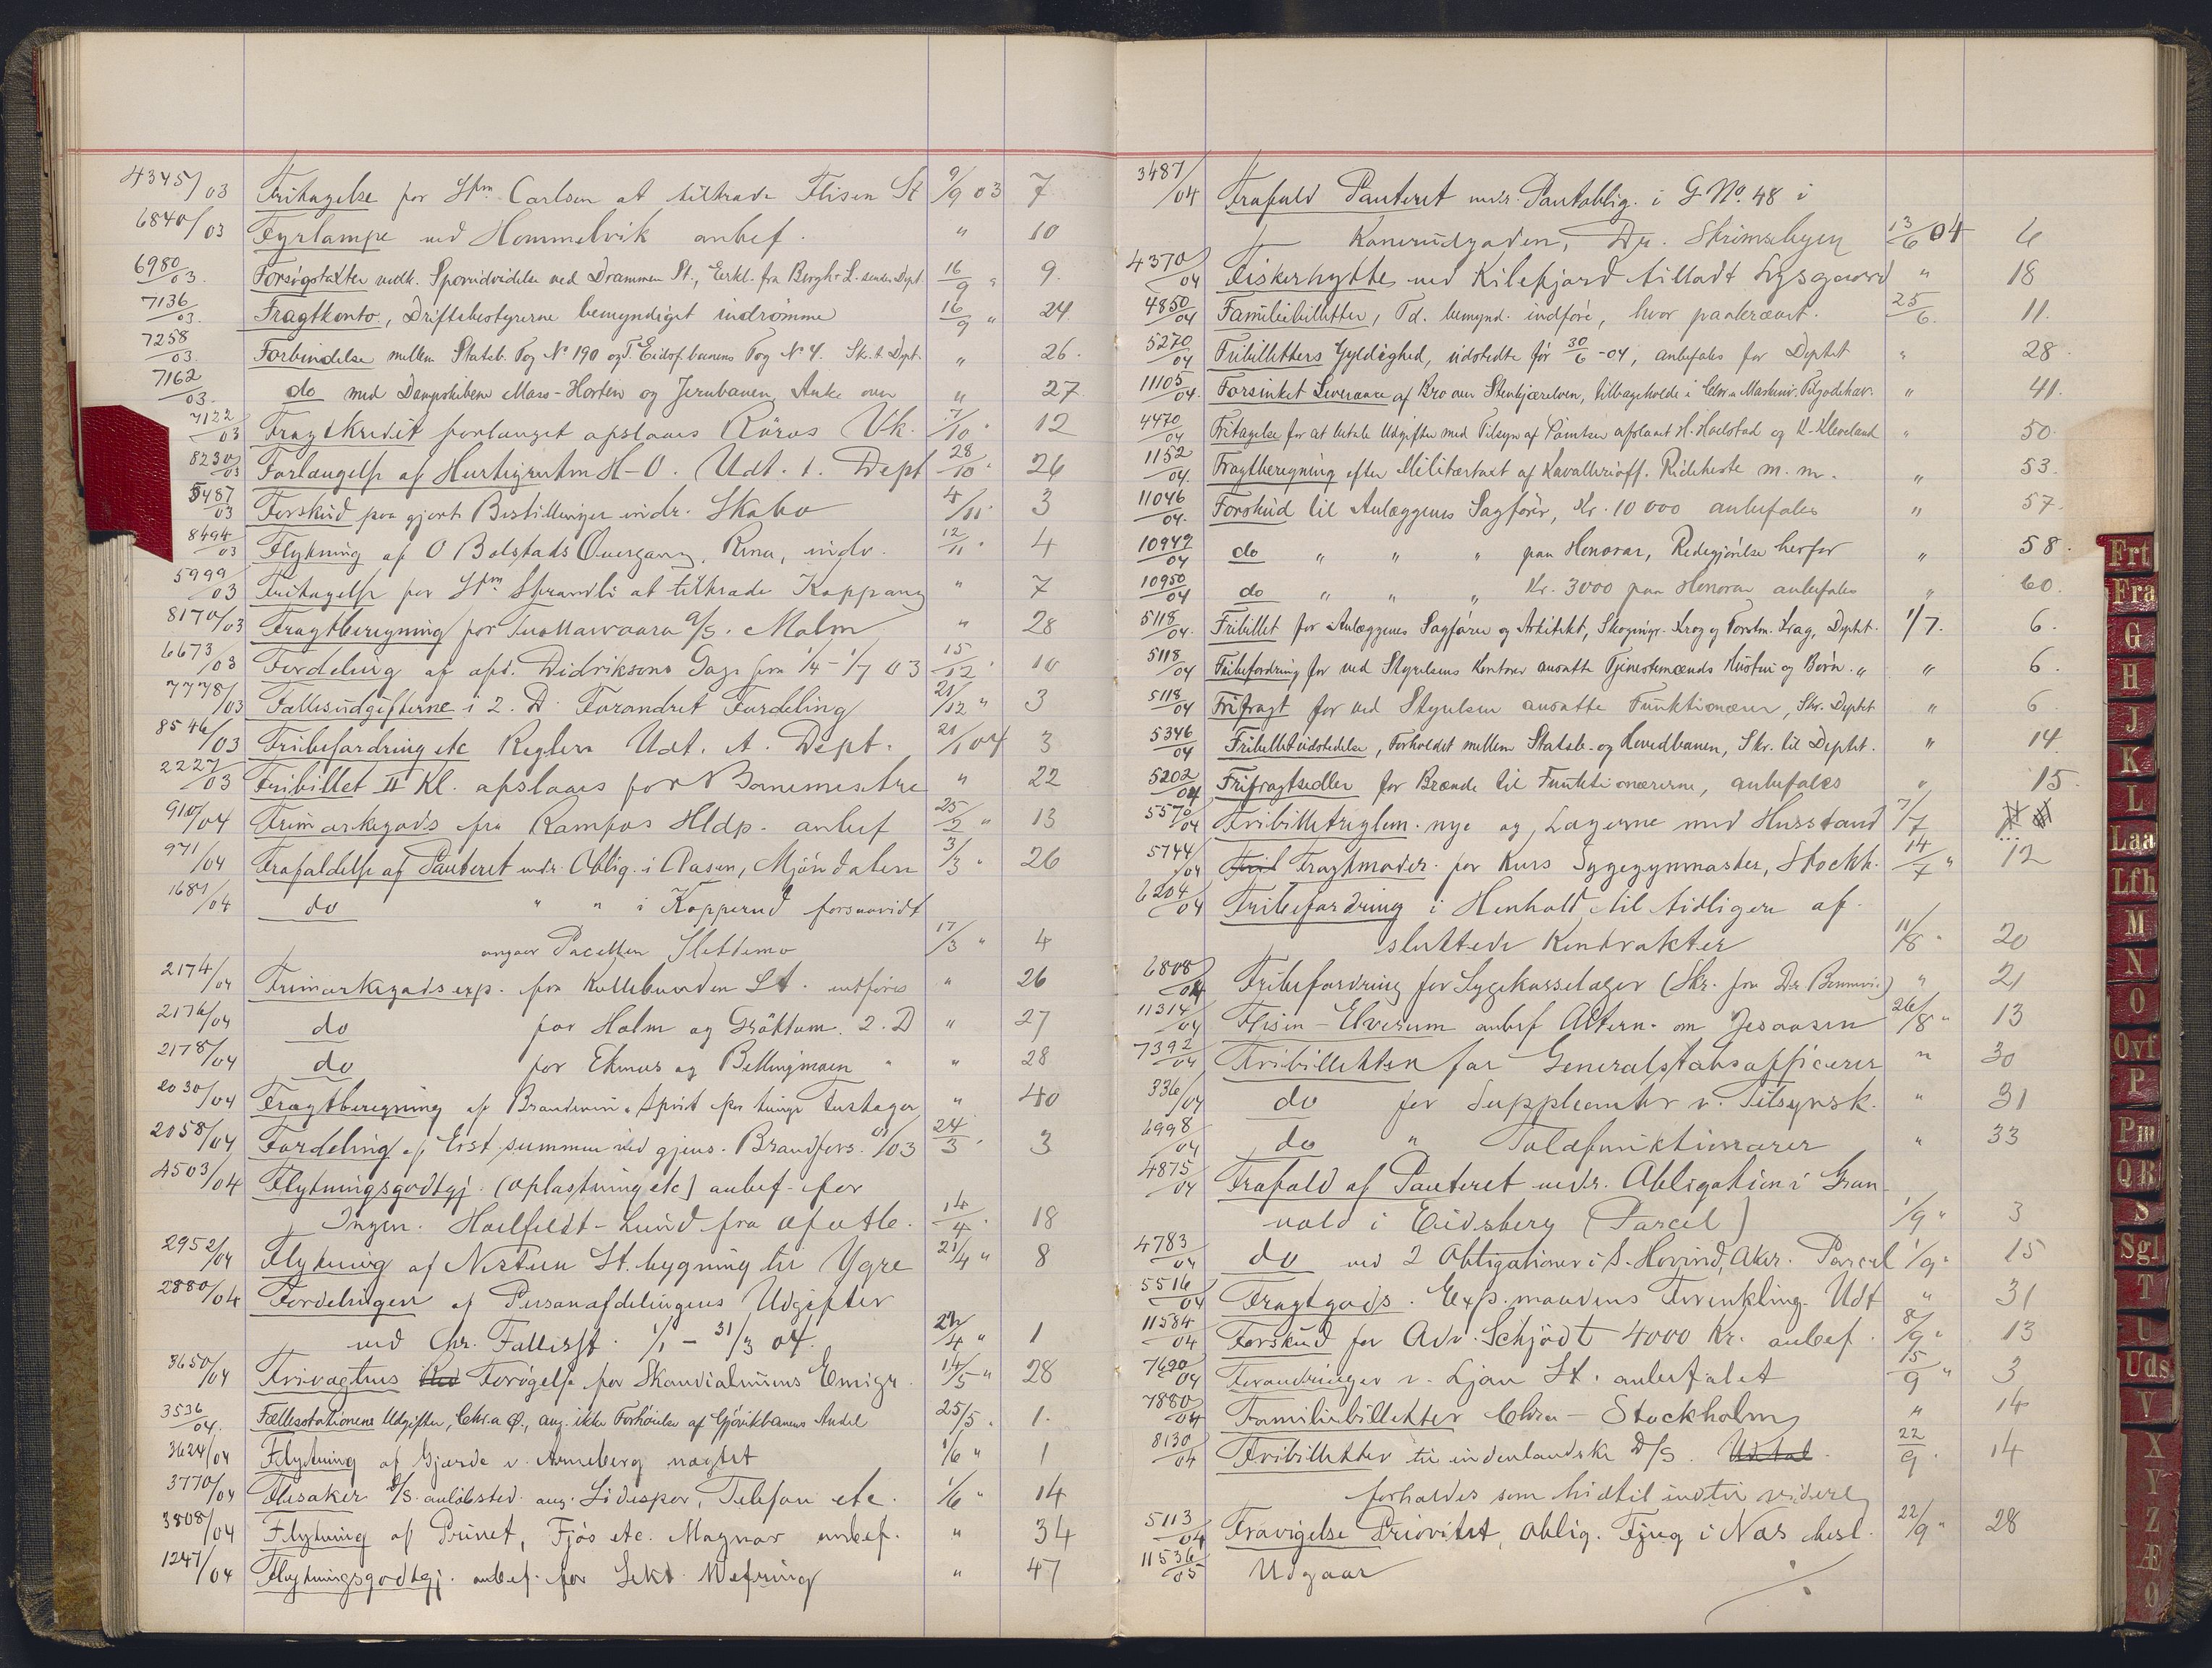 4345/03 Fritagelse for Stm. Carlsen at tiltræde Flisen St 9/9 03 7
6840/03 Fyrlampe ved Hommelvik anbef. " 10
6980/03. Forsigstalter vedk. Sporudvidelse ved Drammen St., Erkl. fra Bergh & L. sendes Dept. 16/9 " 9.
7136/03. Fragtkonto, Driftsbestyrerne bemyndiget indrømme 16/9 " 24
7258/03. Forbindelse mellem Statsb. Tog No 190 og T. Eidsf. banens Tog No 4. Sk. t. Dept. " 26.
7162/03. do med Dampskibene Moss-Horten og Jernbanen, Anke over " 27.
7122/03 Fragtkredit forlanget afslaaes Røros Vk. 7/10 " 12
8230/03 Forlængelse af Hurtigruten H-O. Udt. t. Dept 28/10 " 26
5487/03 Forskud paa gjorte Bestillinger indr. Skabo 4/11 " 3
8494/03 Flytning af O Bolstads Overgang, Rena, indv. 12/11 " 4
5999/03 Fritagelse for Stm Strandli at tiltræde Koppang " 7
8170/03 Fragtberegning for Tuollavaara A/S. Malm " 28
6673/03 Fordeling af afd. Didriksons Gage fra 1/4 - 1/7 03 15/12 " 10
7778/03 Fællesudgifterne i 2. D. Forandret Fordeling 21/12 " 3
8546/03 Fribefordring etc Reglen Udt. t. Dept. 21/1 04 3
2227/03 Fribillet II Kl. afslaaes for Banemestre " 22
910/04 Frimærkegods fra Ramfos Hldp. anbef 25/2 " 13
971/04 Frafaldelse af Panteret indr. Oblig. i Aasen, Mjøndalen 3/3 " 26
1681/04 do " " i Kopperud forsaavidt
angaar Parcellen Slettemo 17/3 " 4
2174/04 Frimærkegods exp. fra Kullebunden St. indføres " 26
2176/04 do for Holm og Grøttum. 2. D " 27
2178/04 do for Eknes og Bellingmoen " " 28
2030/04 Fragtberegning af Brændevin & Sprit efter tunge Fustager " 40
2058/04 Fordeling af Erst. summen ved gjens. Brandfors. /03 24/3 " 3
4503/04 Flytningsgodtgj. (oplastning etc) anbef. for
Ingen. Hoelfeldt-Lund fra Ofotb. 14/4 " 18
2952/04 Flytning af Nestun St. bygning til Ygre 21/4 " 8
2880/04 Fordelingen af Personafdelingens Udgifter
ved Chr. Fællesst. 1/1 - 31/3 04. /4 " 1
3650/04 Frivagtens Forøgelse for Skandialiniens Emigr. 14/5 " 28
3536/04. Fællesstationens Udgifter, Chr.a Ø., ang. ikke Forhøielse af Gjøvikbanens Andel 25/5. 1.
3624/04 Flytning af Gjærde v. Arneberg nægtet 1/6 " 1
3770/04 Flesaker D/S. anløbsted ang. Sidespor, Telefon etc. 1/6 " 14
3808/04 Flytning af Privet, Fjøs etc. Magnor anbef. " 34
1247/04 Flytningsgodtgj. anbef. for Sekt. Wefring " 47
3487/04 Frafald Panteret vedr. Pantoblig. i G No. 48 i
Konerudgaden, Dr. Skrimshagen 13/6 04 6
4370/04 Fiskerhytte ved Kilefjord tilladt Lysgaard " 18
4850/04 Familiebilletter, Td. bemynd. indføre, hvor paakrævet. 25/6. 11.
5270/04 Fribilletters Gyldighed, udstedte før 30/6-04, anbefales for Deptet " 28.
11105/04. Forsinket Leverance af Bro over Stenkjærelven, tilbageholde i Chr.a Maskinv. Tilgodehav. " 41.
4470/04 Fritagelse for at betale Udgifter med Tilsyn af Tomter afslaaet H. Hoelstad og K. Kleveland " 50.
1152/04. Fragtberegning efter Militærtaxt af Kavallerioff. Rideheste m. m. " 53.
11046/04. Forskud til Anlæggenes Sagfører, Kr. 10 000 anbefales " 57.
10949/04 do " " " paa Honorar, Redegjørelse herfor " 58.
10950/04 do " " " Kr. 3000 paa Honorar anbefales " 60.
5118/04. Fribillet for Anlæggenes Sagfører og Arkitekt, Skogingr. Krog og Forstm. Krag, Deptet. 1/7. 6.
5118/04 Fribefordring for ved Styrelsens Kontorer ansatte Tjenestemænds Hustru og Børn. " " 6.
5118/04 Frifragt for ved Styrelsen ansatte Funktionærer, Skr. Deptet " 6
5346/04 Fribilletudstedelse, Forholdet mellem Statsb- og Hovedbanen, Skr. til Deptet. " 14.
5202/04 Frifragtsedler for Brænde til Funktionærerne, anbefales " 15.
5570/04 Fribilletreglem. nye og Lægerne med Husstand 7/7
5744/04 Fragtmoder. for Kurs Sygegymnaster, Stockh. 14/7 " 12
6204/04 Fribefordring i Henhold til tidligere af-
sluttede Kontrakter 11/8 " 20
6808/04 Fribefordring for Sygekasselæger (Skr. fra Dr. ) " 21
11314/04 Flisen-Elverum anbef Altern. om Jesaasen 26/8 " 13
7392/04 Fribilletten for Generalstabsofficerer " 30
336/04 do for Suppleanter v. Tilsynsk. " 31
6998/04 do " Toldfunktionærer " 33
4875/04 Frafald af Panteret vedr. Obligation i Gran-
vold i Eidsberg (Parcel) 1/9 " 3
4783/04 do ved 2 Obligationer i S. Hovind, Aker. Parcel 1/9 " 15
5516/04 Fragtgods. Exp. maadens Forenkling. Udt " 31
11584/04 Forskud for Adv. Schjødt 4000 Kr. anbef. 8/9 " 13
7690/04 Forandringer v. Ljan St. anbefalet 15/9 " 3
7880/04 Familiebilletter Chr.a - Stockholm " 14
8130/04 Fribilletter til indenlandske D/S. Udtal. 22/9 " 14
forholdes som hidtil indtil videre
5113/04 Fravigelse Prioritet, Oblig. Fjug i Nas best. 22/9 " 28
11536/05 Udgaar
Frt
Fra
G
H
J
K
L
Laa
Lfh
M
N
O
Ovf
P
Pm
QR
S
Sgl
T
U
Uds
V
X
Y
Z
Æ
Ø